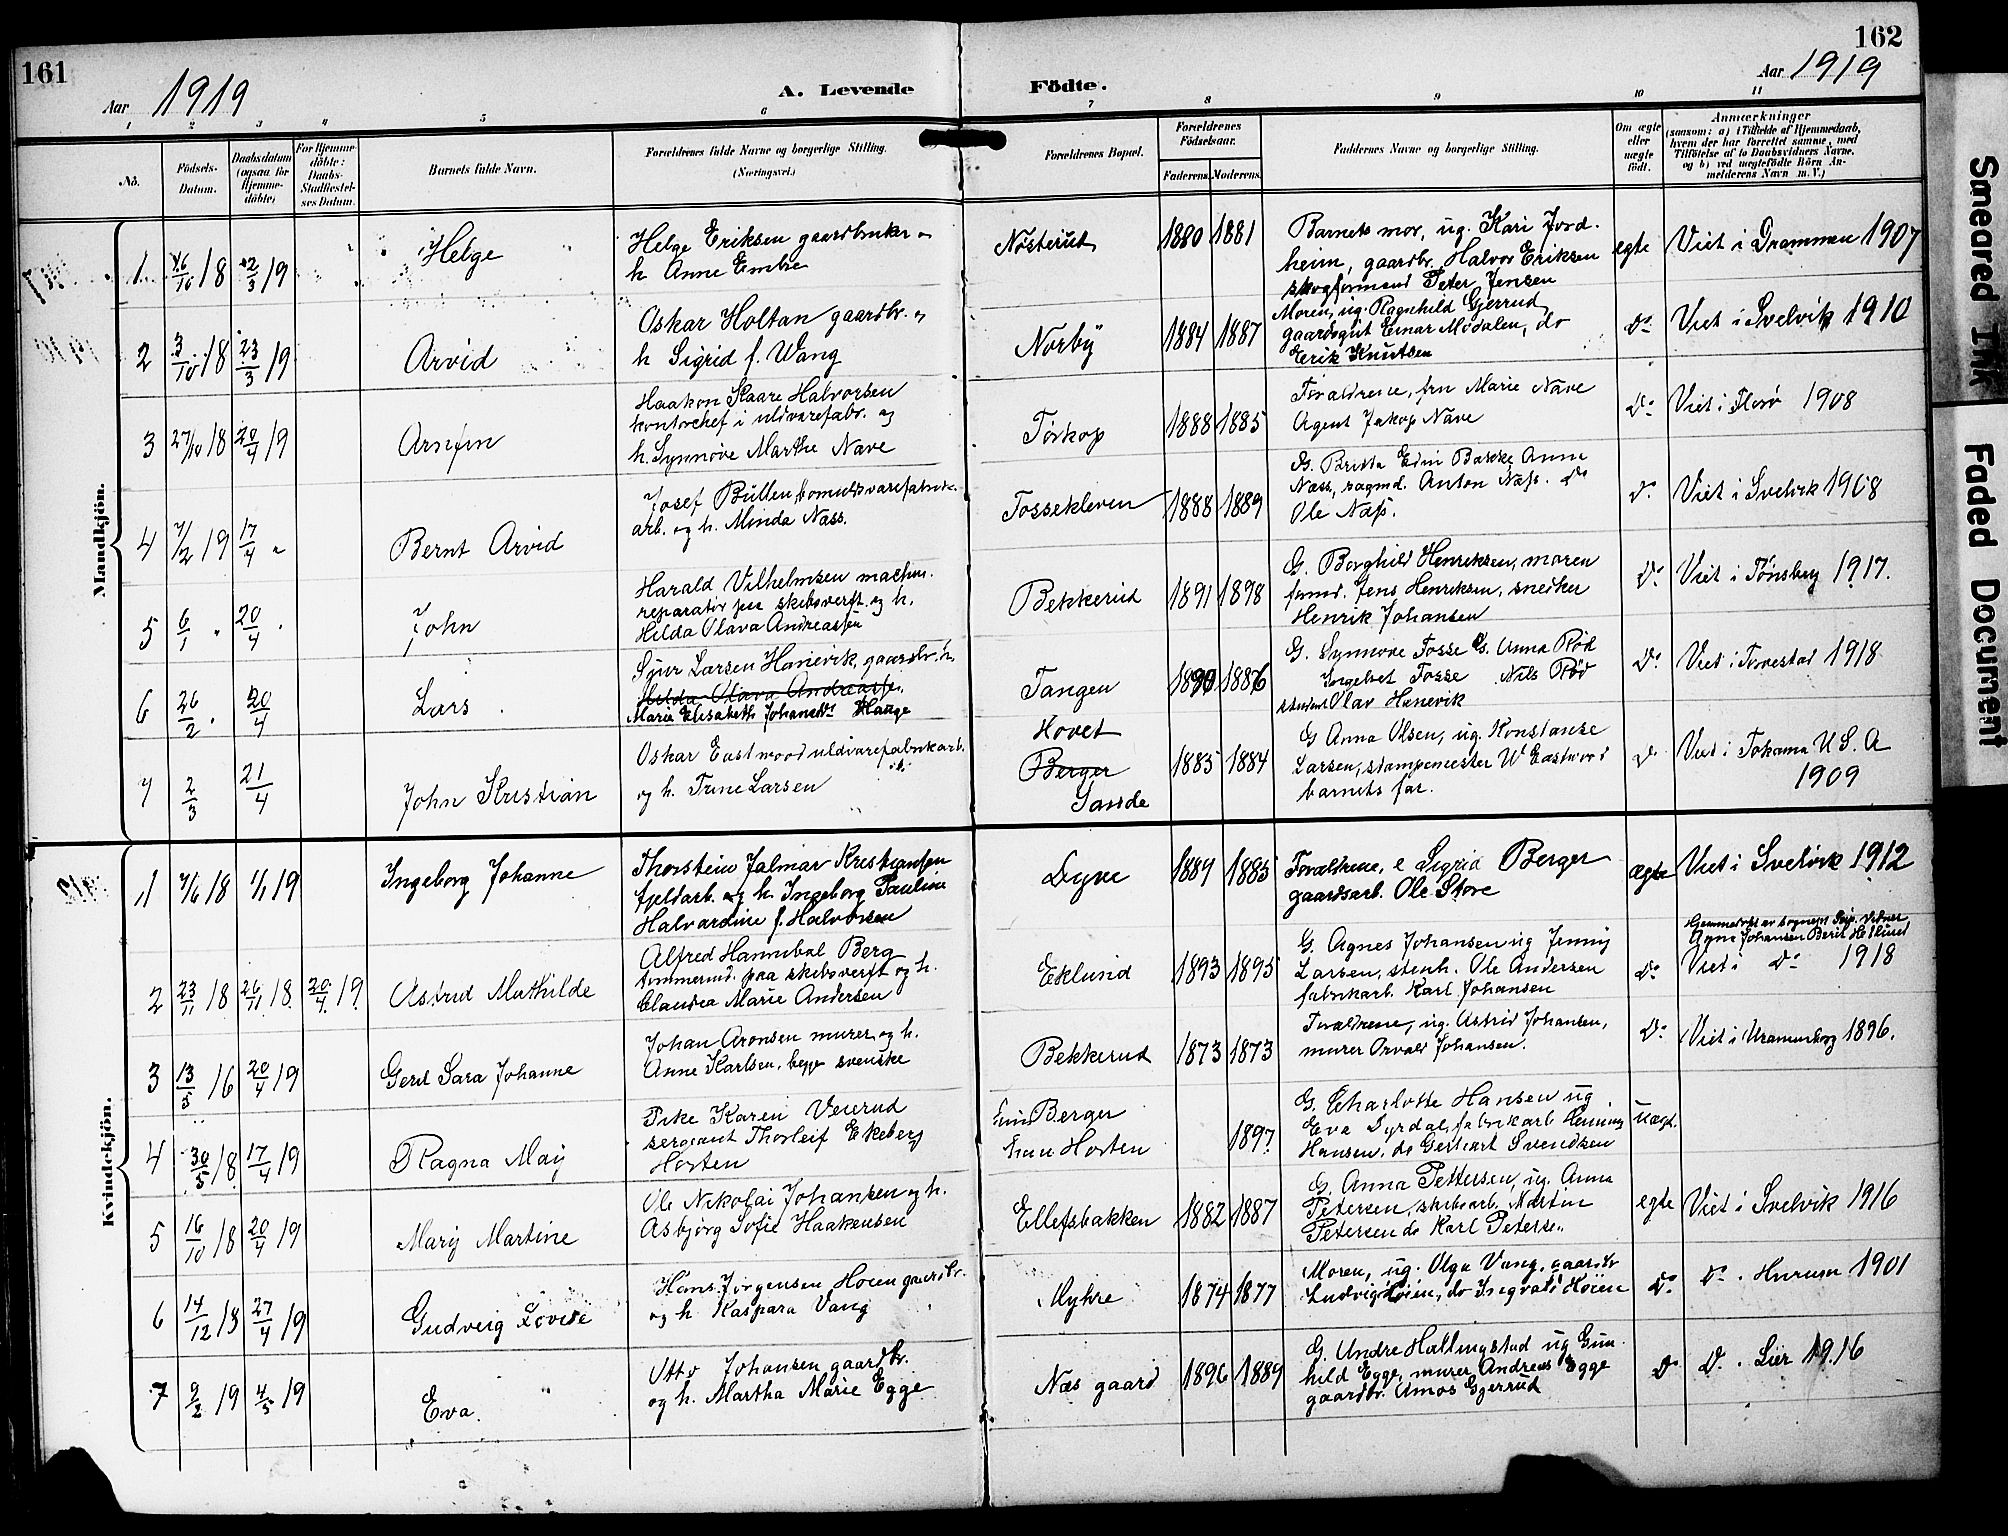 161
162
Aar 1919
A. Levende Födte.
Aar 1919
1 2 3 4 5 6 7 8 9 10 11
No.
Födsels-
Datum.
Daabsdatum
(ogsaa for
Hjemme-
döbte)
For Hjemme-
döbte:
Daabs-
Stadfæstel-
ses Datum.
Barnets fulde Navn.
Forældrenes fulde Navne og borgerlige Stilling.
(Næringsvei.)
Forældrenes Bopæl.
Forældrenes
Födselsaar.
Faderens.
Moderens.
Faddernes Navne og borgerlige Stilling.
Om ægte
eller
uægte
födt.
Anmærkninger
(saasom: a) i Tilfælde af Hjemmedaab,
hvem der har forrettet samme, med
Tilföielse af to Daabsvidners Navne,
og b) ved uægtefödte Börn An-
melderens Navn m. V.)
Mandkjön.
1 16/10 18 2/3 19
Helge
Helge Eriksen gaardbruker og
h. Anne Embre
Nøsterud
1880 1881
Barnets mor, ug. Kari Jord-
heim, gaardbr. Halvor Eriksen
skogformand Peter Jensen
egte
Viet i Drammen 1907
2 3/10 18 23/3 19
Arvid
Oskar Holtan gaardbr. og
h. Sigrid f. Wang
Norby
1884 1887
Moren, ug. Ragnhild Gjerrud,
gaardsgut Einar Modalen, do
Erik Knutsen
do
Viet i Svelvik 1910
3 27/10 18 20/4 19
Arnfin
Haakon Kaare Halvorsen
kontorchef i uldvarefabr. og
h. Synnøve Marthe Nave
Torkop
1888 1885
Forældrene, fru Marie Nave
Agent Jakop Nave
do
Viet i Florø 1908
4 7/2 19 17/4 "
Bernt Arvid
Josef Bullen, bomuldsvarefabrik-
arb. og h. Minda Næss.
Fossekleven
1888 1889
G. Britta Edin Bakke Anna
Næss, sagmd. Anton Næss. do
Ole Næss.
do
Viet i Svelvik 1908
5 6/1 " 20/4 "
John
Harald Vilhelmsen maskin-
reparatør paa skibsverft og h.
Hilda Olava Andreassen
Bekkerud
1891 1898
G. Borghild Henriksen, moren
formd. Jens Henriksen, snedker
Henrik Johansen
do
Viet i Tønsberg 1917.
6 26/2 " 20/4
Lars
Sjur Larsen Hanevik, gaardbr. h.
Hilda Olava Andreasse.
Marie Elisabeth Johansdtr Hauge
Tangen
1890 1886
G. Synnøve Fosse G. Anna Rød
Ingebret Fosse Nils Rød
student Olav Hanevik
do
Viet i Torvestad 1918
7 2/3 21/4
John Kristian
Oskar Eastwood uldvarefabrikarb.
og h. Trine Larsen
Hovet
Berger
Sande
1883 1884
G Anna Olsen, ug. Konstanse
Larsen, stampemester W Eastwood
barnets far.
do
Viet i Tokama U.S.A
1909
Kvindekjön.
1 7/6 18 1/1 19
Ingeborg Johanne
Thorstein Jalmar Kristiansen
fjeldarb. og h. Ingeborg Pauline
Halvardine f. Halvorsen
Dyne
1889 1885
Forældrene, e Sigrid Berger
gaardsarb. Ole Støre
ægte
Viet i Svelvik 1912
2 23/11 18 26/11 18 20/4 19
Astrid Mathilde
Alfred Hannibal Berg
tømmermd. paa skibsverft og h.
Claudia Marie Andersen
Eklund
1893 1895
G. Agnes Johansen ug Jenny
Larsen, stenh. Ole Andersen
fabrikarb. Karl Johansen
do
Hjemmedøbt av sognepr. Vidner
Agne Johansen Berit Hotlund
Viet i do 1918
3 13/5 16 20/4 19
Gerd Sara Johanne
Johan Aronsen murer og h.
Anne Karlsen, begge svenske
Bekkerud
1873 1873
Forældrene, ug. Astrid Johansen,
murer Osvald Johansen.
do
Viet i 1896.
4 30/5 18 17/4 19
Ragna May
Pike Karen Veierud
sergeant Thorleif Ekeberg
Horten
Berger
han Horten
1897
G. Charlotte Hansen ug
Eva Syrdal, fabrikarb Henning
Hansen, do Gerhart Svendsen
uægt.
5 16/10 18 20/4 19
Mary Martine
Ole Nikolai Johansen og h.
Asbjørg Sofie Haakensen
Ellefsbakken
1882 1887
G. Anna Pettersen, ug. Anna
Petersen, skibsarb. Martin
Petersen do Karl Peterse..
egte
Viet i Svelvik 1916
6 14/12 18 27/4 19
Gudveig Lovise
Hans Jørgensen Høien gaardbr.
og h Kaspara Vang
Myhre
1874 1877
Moren, ug. Olga Vang, gaardbr
Ludvig Høien, do Ingvald Høien
do
do. Hurum 1901
7 9/2 19 4/5 19
Eva.
Otto Johansen gaardbr.
og h. Martha Marie Egge
Næs gaard
1896 1889
G. Andre Hallingstad ug Gun-
hild Egge, murer Andreas Egge
gaardbr. Amos Gjerrud
do
do. Lier 1916
Smeared Ink
Faded Document